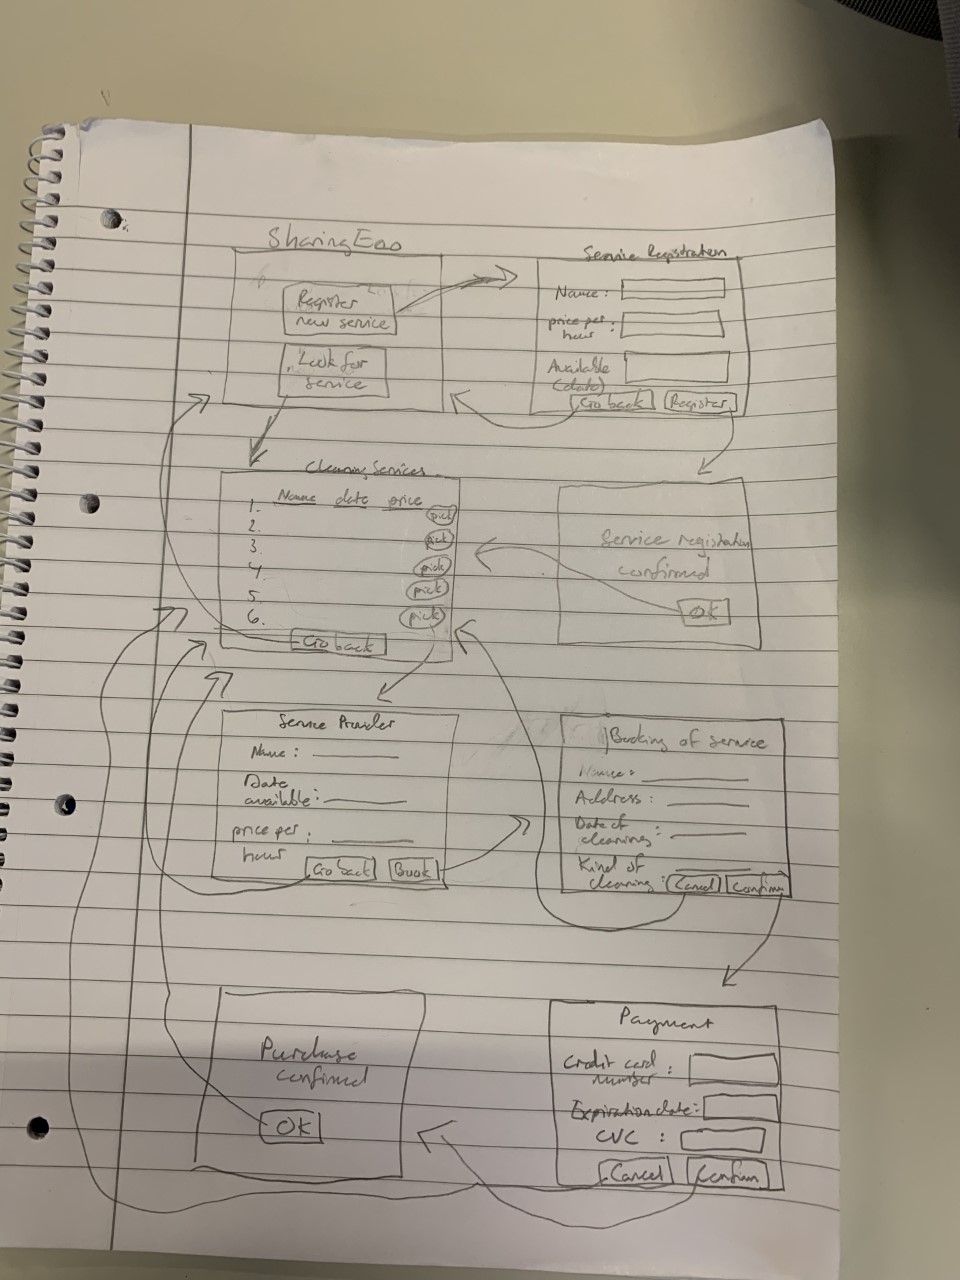 SharingEoo
Register
new service
Look for
service
Service Registration
Name:
price per
hour :
Available
(date)
Go back Register
Cleaning Services
Name date price
1. pick
2.
3. pick
4. pick
5 pick
6. pick
Go back
Service registration
confirmed
OK
Service Provider
Name :
Date
available:
price per :
hour
Go back Book
Booking of service
Name:
Address :
Date of
cleaning :
Kind of
cleaning : Cancel Confirm
Purchase
confirmed
OK
Payment
Credit card
number :
Expiration date:
CVC :
Cancel Confirm